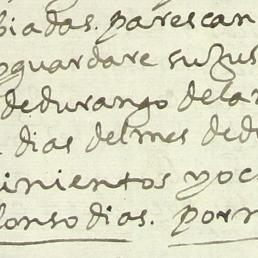 biadas. parescan
oguardare su Jus
dedurango dela
dias delmes ded
inientos yoc
lonso dias. porm